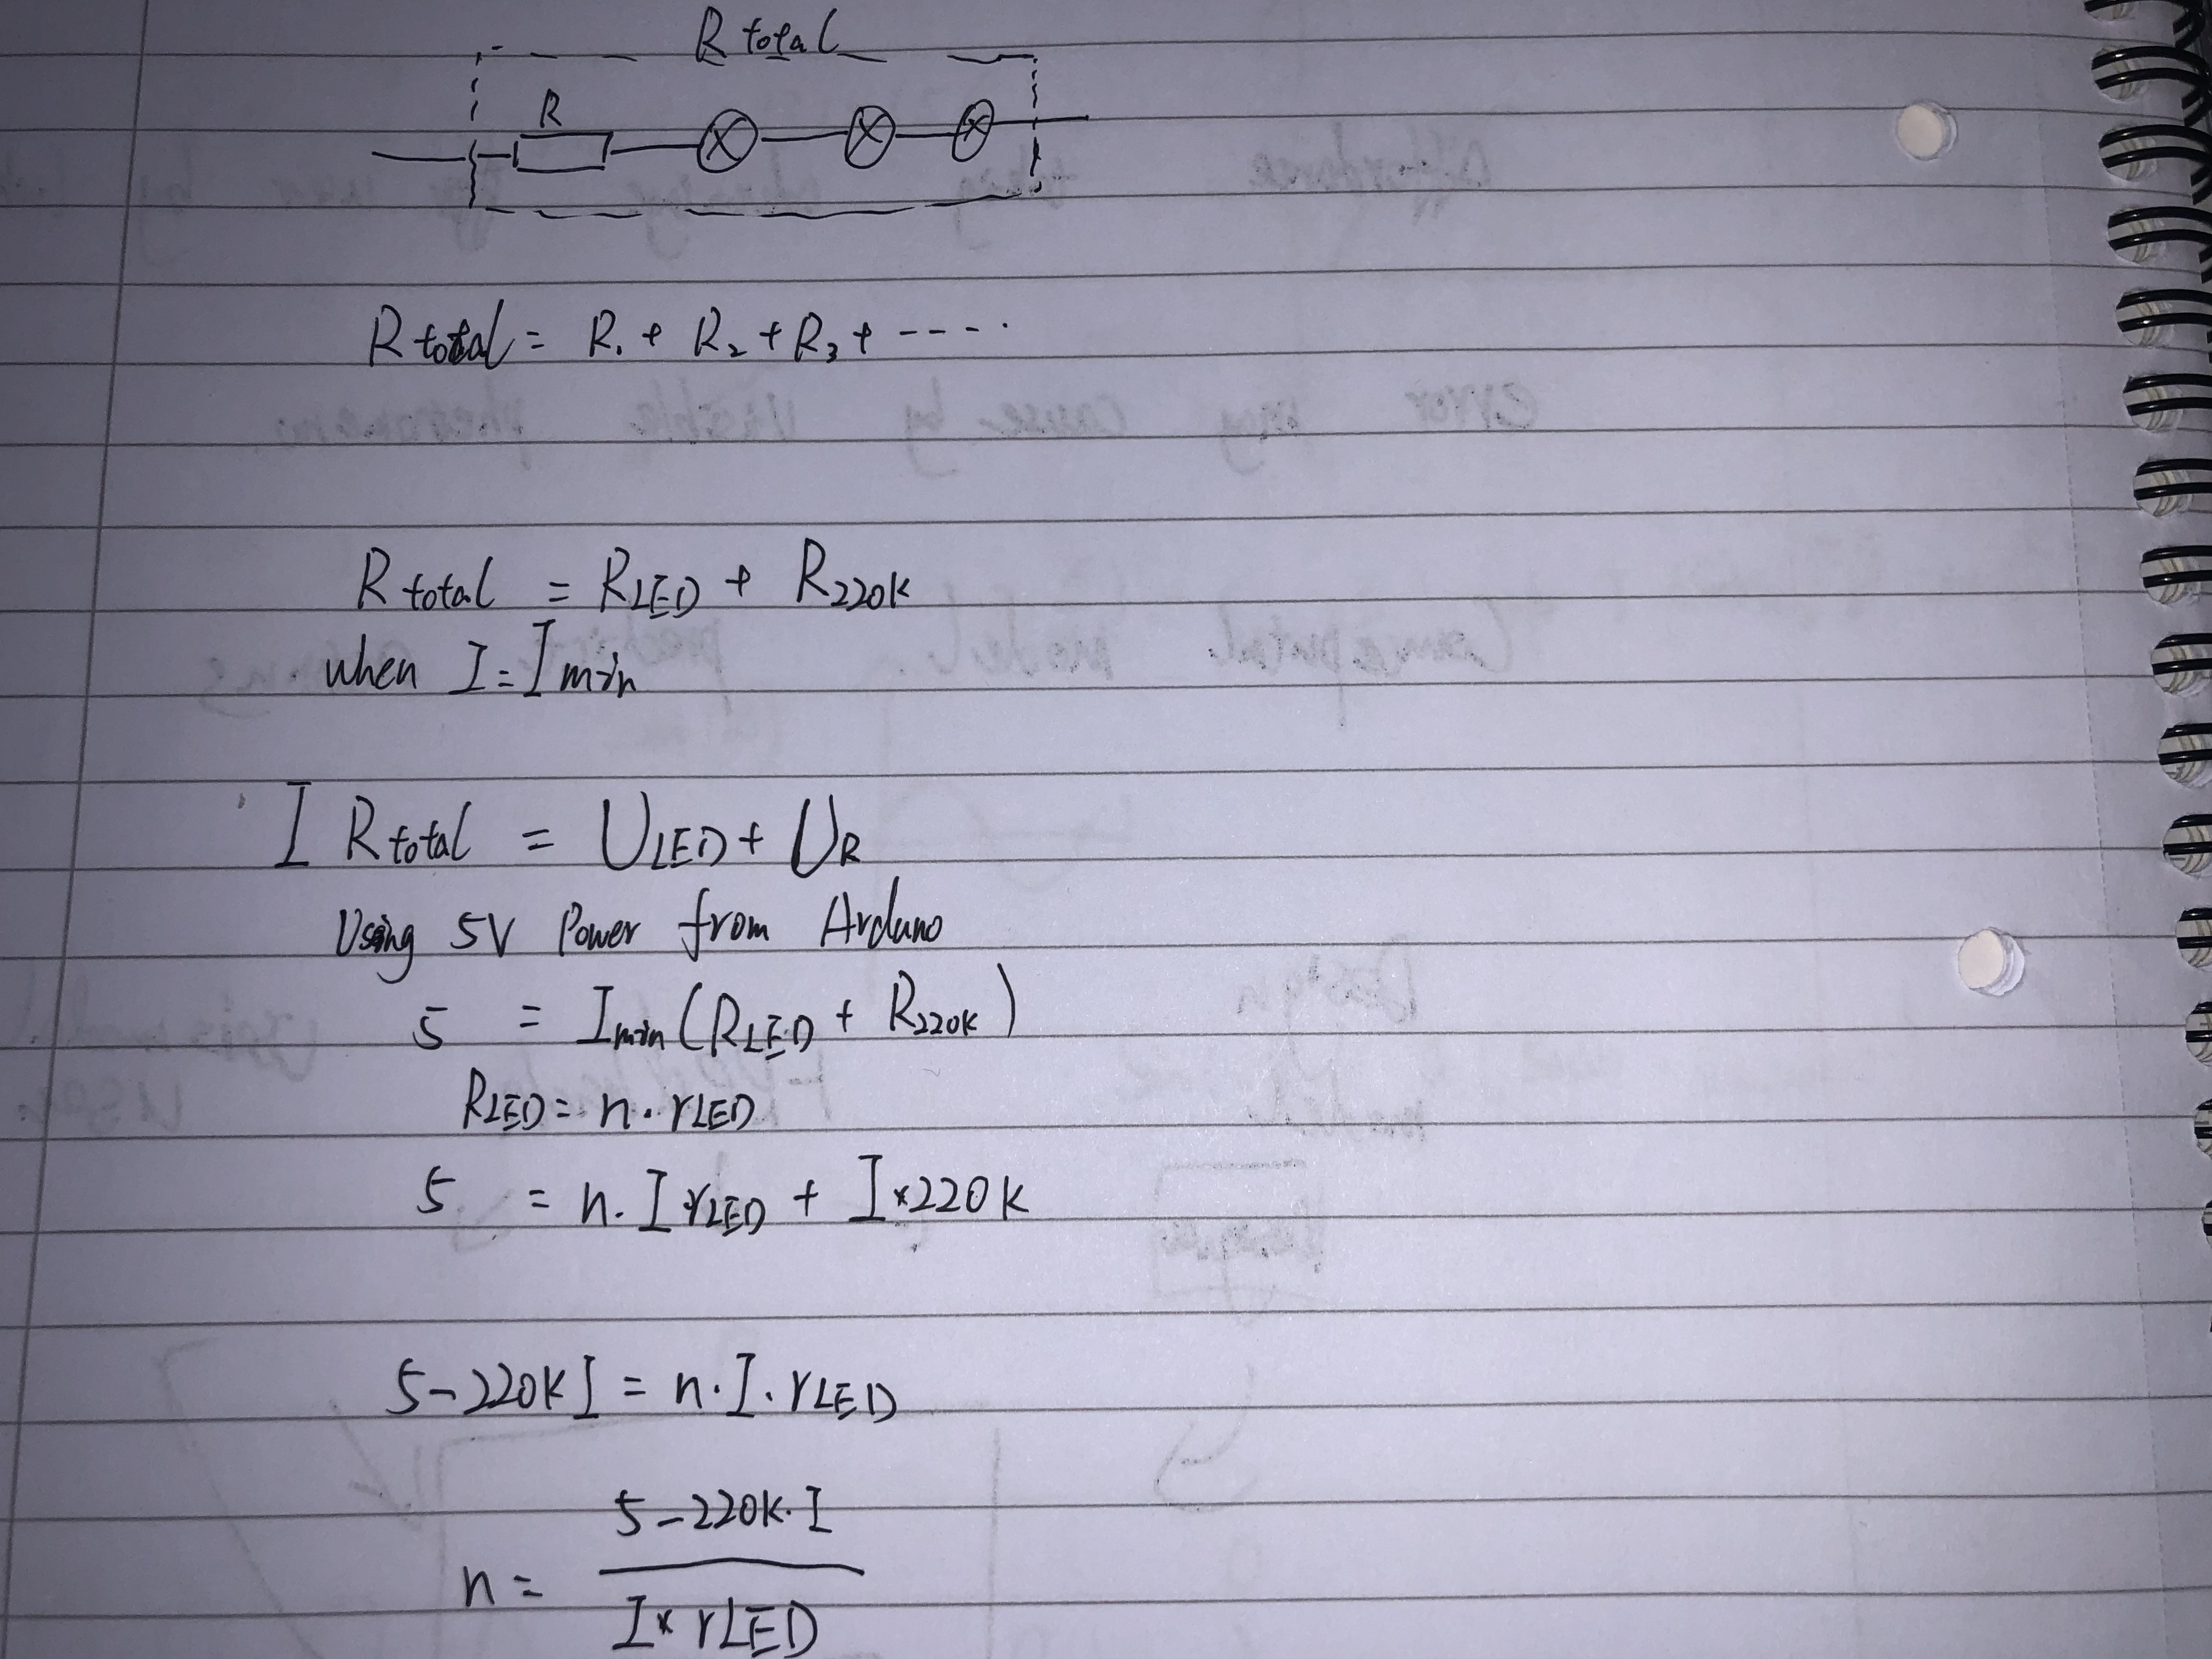 R total
R
R total = R1 + R2 + R3 + ----·
R total = RLED + R220K
when I = I min
I R total = ULED + UR
Using 5V Power from Arduno
5 = Imin (RLED + R220K)
RLED = n · rLED
5 = n · I rLED + I × 220K
5 - 220K I = n · I · rLED
5 - 220K · I
n =
I × rLED